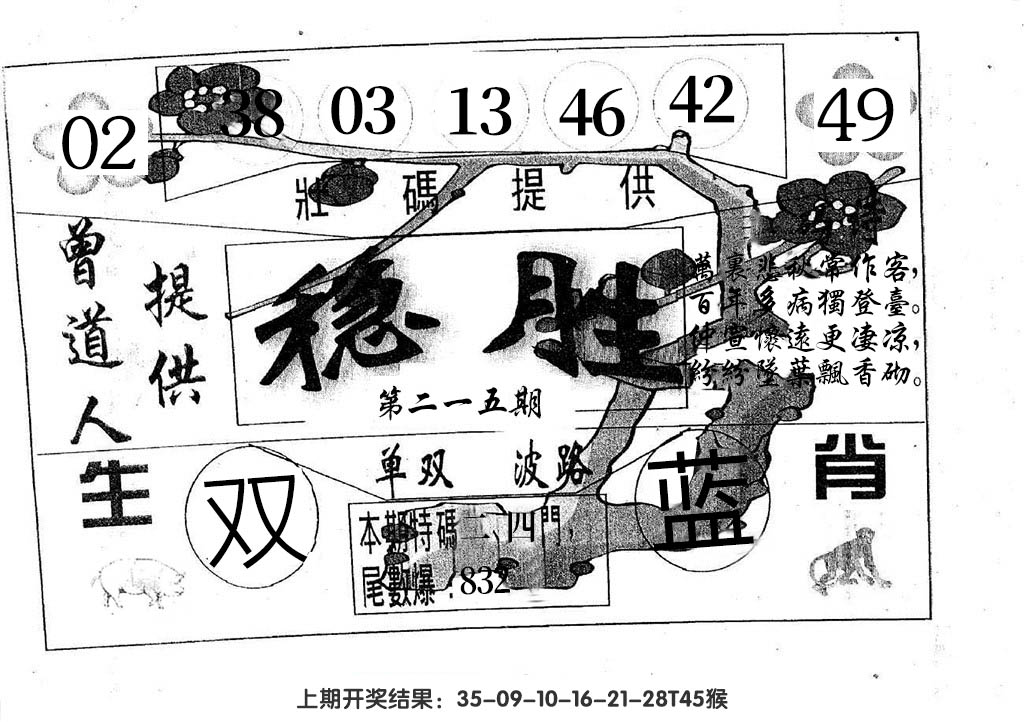 02 38 03 13 46 42 49
壯碼提供
曾道人
提供
稳胜
第二一五期
萬裏悲秋常作客，
百年多病獨登臺。
懷遠更凄凉，
紛紛墜葉飄香砌。
单双 波路
生
双
蓝
肖
本期特碼二、四門，
尾數爆：832
上期开奖结果：35-09-10-16-21-28T45猴